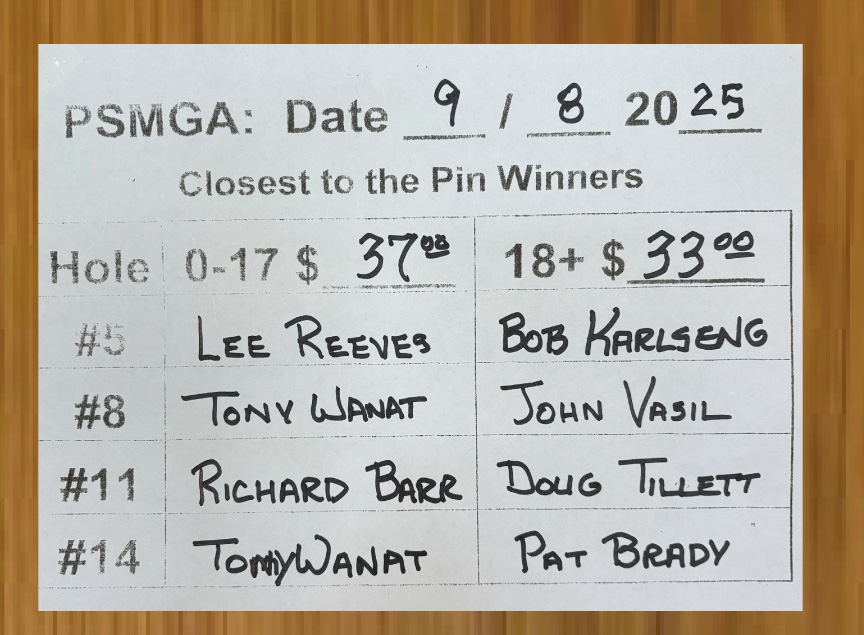 PSMGA: Date 9 / 8 2025
Closest to the Pin Winners
Hole 0-17 $ 37.00 18+ $ 33.00
#5 LEE REEVES BOB KARLSENG
#8 TONY WANAT JOHN VASIL
#11 RICHARD BARR DOUG TILLETT
#14 WANAT PAT BRADY